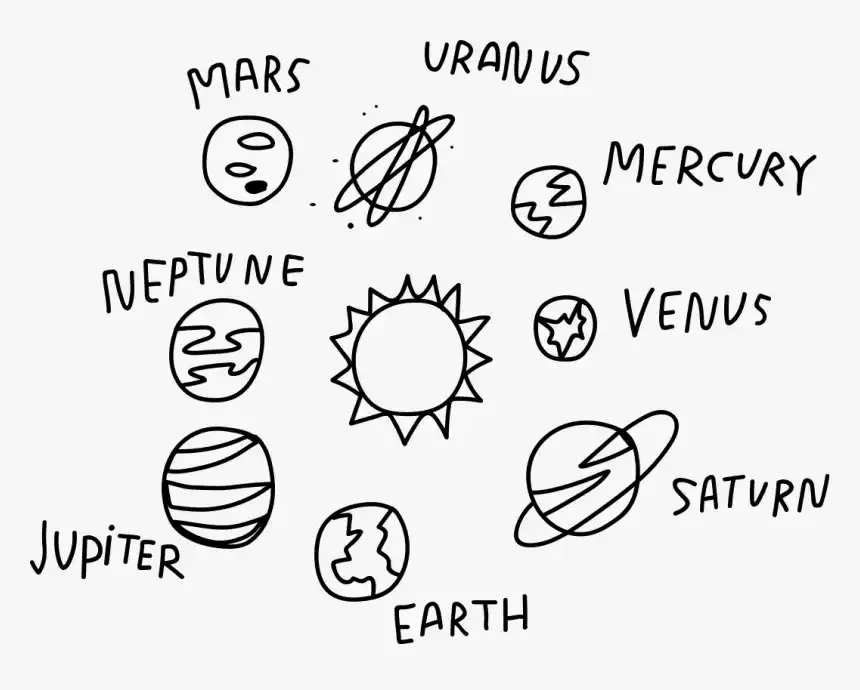 URANUS
MARS
MERCURY
NEPTUNE
VENUS
SATURN
JUPiTER
EARTH